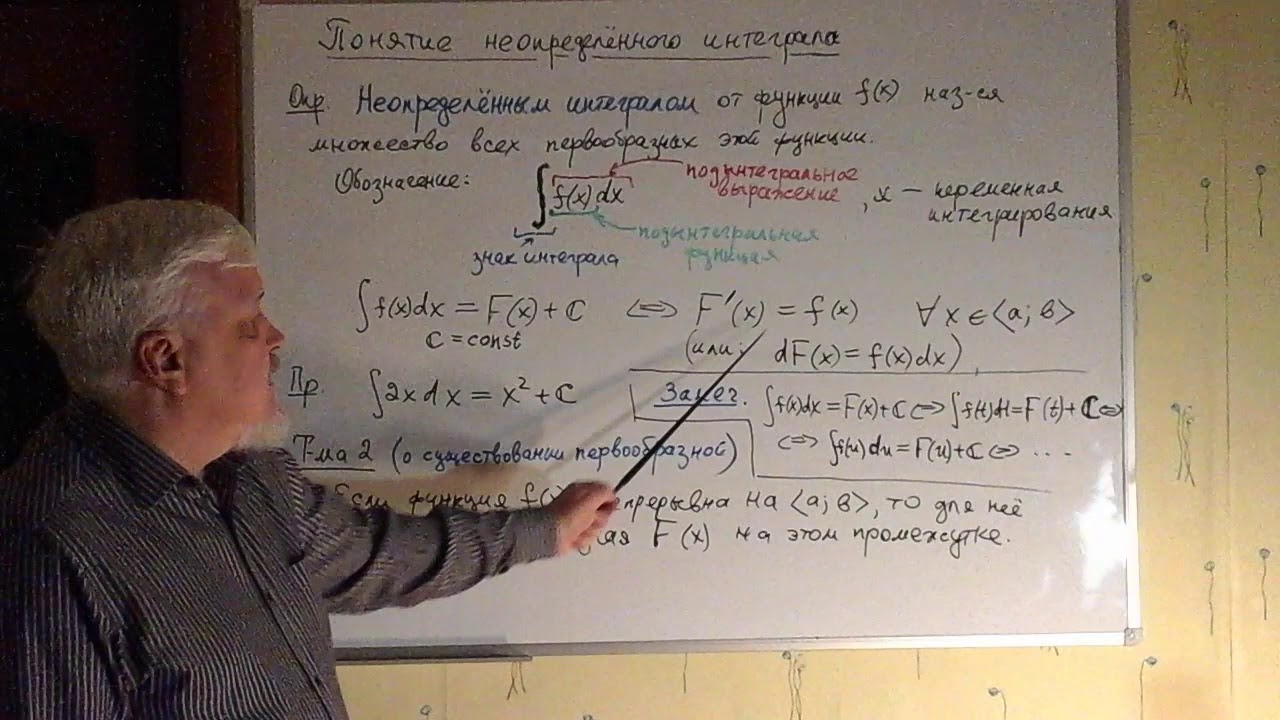 Понятие неопределённого интеграла
Опр. Неопределённым интегралом от функции f(x) наз-ся
множество всех первообразных этой функции.
Обозначение: ∫ f(x) dx
подынтегральное
выражение
, x — переменная
интегрирования
подынтегральная
функция
знак интеграла
∫ f(x) dx = F(x) + C ⇔ F′(x) = f(x) ∀ x ∈ ⟨a; b⟩
C = const
(или: dF(x) = f(x) dx)
Пр. ∫ 2x dx = x² + C
Замеч. ∫ f(x) dx = F(x) + C ⇔ ∫ f(t) dt = F(t) + C ⇔
⇔ ∫ f(u) du = F(u) + C ⇔ ...
Т-ма 2 (о существовании первообразной)
Если функция f(x) на ⟨a; b⟩, то для неё
F(x) на этом промежутке.